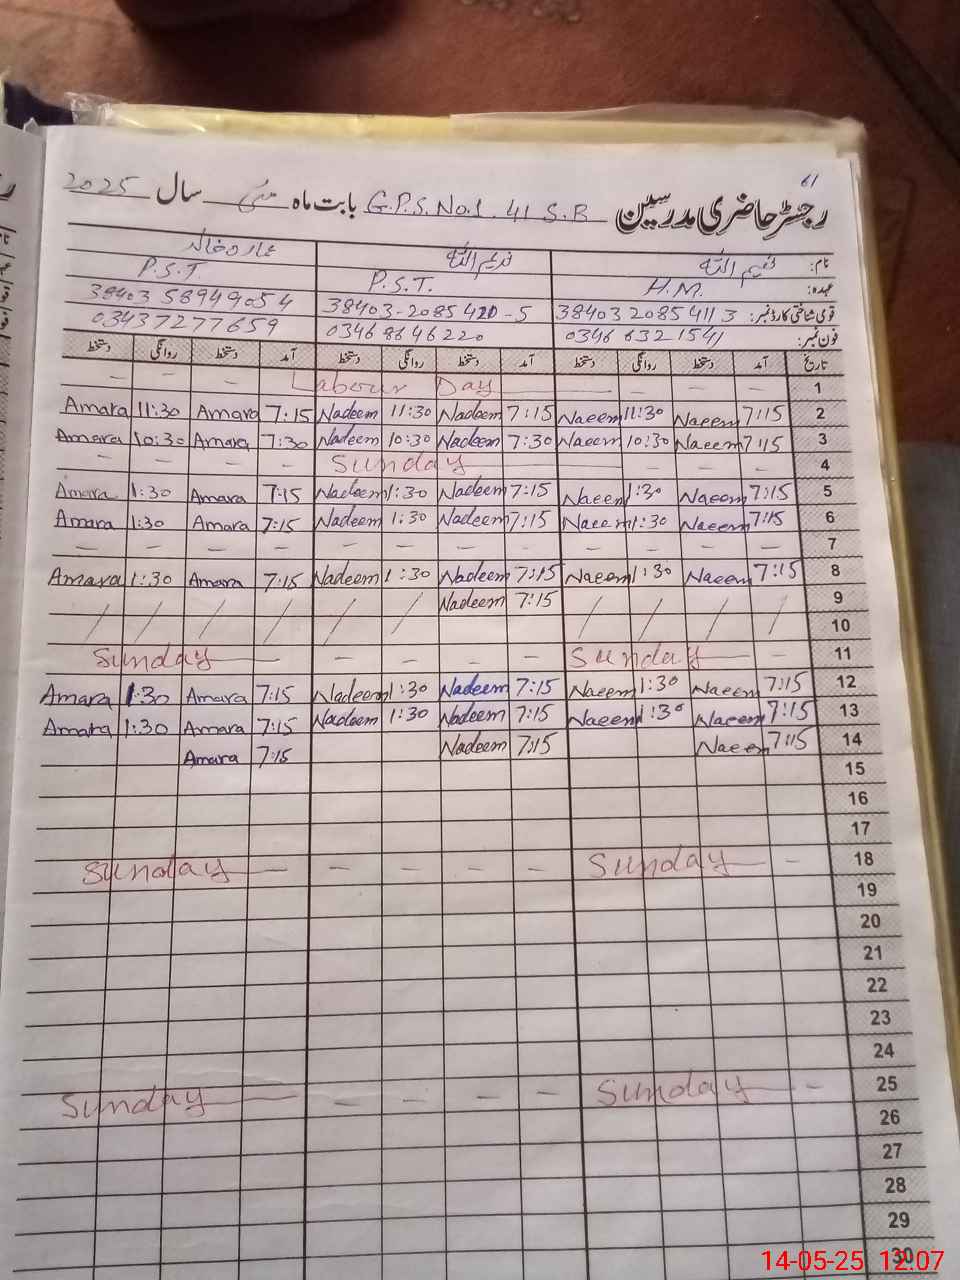 61
رجسٹر حاضری مدرسین G.P.S. No.1 41 S.B بابت ماہ مئی سال 2025
نام: نعیم اللہ ندیم اللہ عمارہ خالد
عہدہ: H.M. P.S.T. P.S.T.
قومی شناختی کارڈ نمبر: 38403 2085411 3 38403-2085420-5 38403 5894905 4
فون نمبر: 0346 6321541 0346 8646220 03437277659
تاریخ آمد دستخط روانگی دستخط آمد دستخط روانگی دستخط آمد دستخط روانگی دستخط
— — — Labour Day — — — 1
Amara 11:30 Amara 7:15 Nadeem 11:30 Nadeem 7:15 Naeem 11:30 Naeem 7:15 2
Amara 10:30 Amara 7:30 Nadeem 10:30 Nadeem 7:30 Naeem 10:30 Naeem 7:15 3
— — — — Sunday — — — — 4
Amara 1:30 Amara 7:15 Nadeem 1:30 Nadeem 7:15 Naeem 1:30 Naeem 7:15 5
Amara 1:30 Amara 7:15 Nadeem 1:30 Nadeem 7:15 Naeem 1:30 Naeem 7:15 6
— — — — — — — — — — — — 7
Amara 1:30 Amara 7:15 Nadeem 1:30 Nadeem 7:15 Naeem 1:30 Naeem 7:15 8
Nadeem 7:15 9
/ / / / / / / / / / 10
Sunday — — — — — Sunday — 11
Amara 1:30 Amara 7:15 Nadeem 1:30 Nadeem 7:15 Naeem 1:30 Naeem 7:15 12
Amara 1:30 Amara 7:15 Nadeem 1:30 Nadeem 7:15 Naeem 1:30 Naeem 7:15 13
Amara 7:15 Nadeem 7:15 Naeem 7:15 14
15
16
17
Sunday — — — — — Sunday — 18
19
20
21
22
23
24
Sunday — — — — — Sunday — 25
26
27
28
29
30
14-05-25 12:07